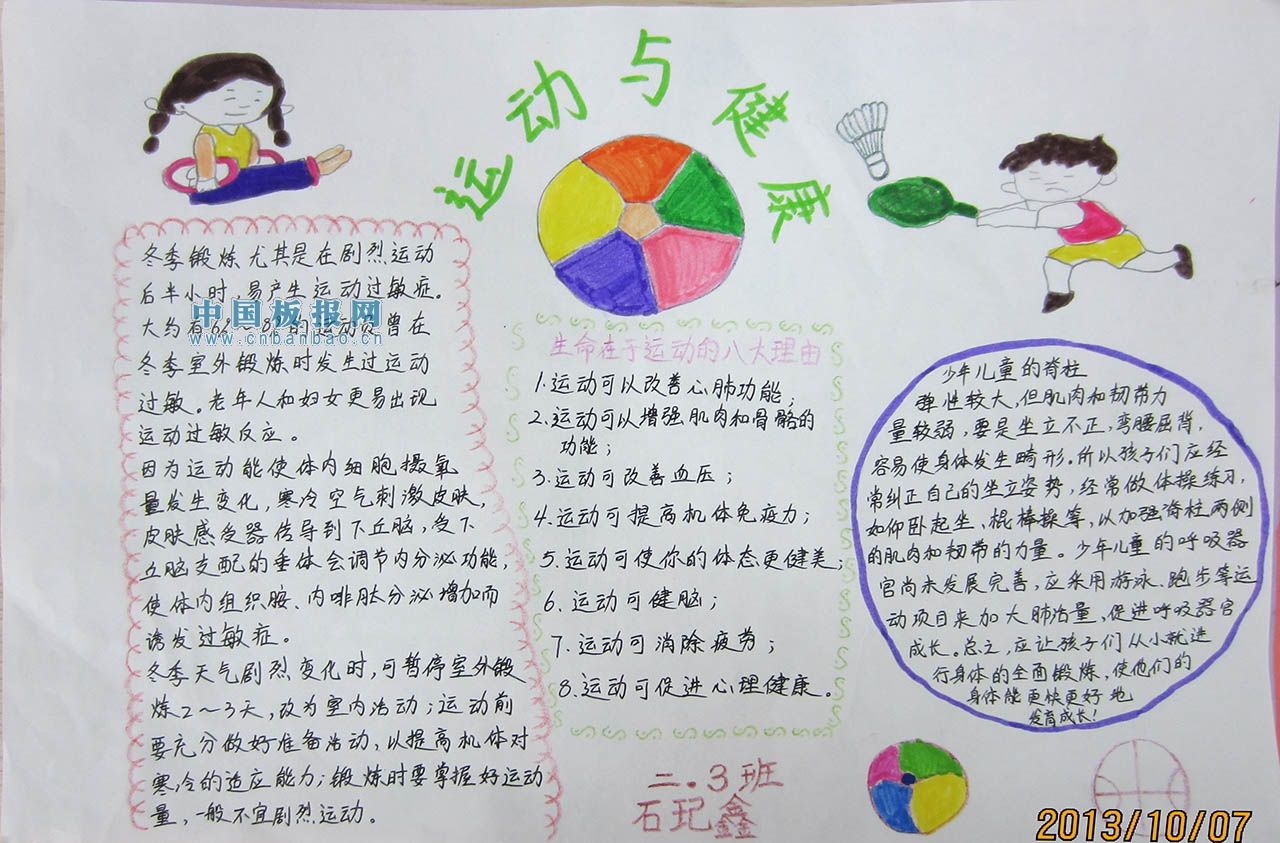 运动与健康
冬季锻炼尤其是在剧烈运动
后半小时,易产生运动过敏症。
大约有6%~8%的运动员曾在
冬季室外锻炼时发生过运动
过敏。老年人和妇女更易出现
运动过敏反应。
因为运动能使体内细胞摄氧
量发生变化,寒冷空气刺激皮肤,
皮肤感受器传导到下丘脑,受下
丘脑支配的垂体会调节内分泌功能,
使体内组织胺、内啡肽分泌增加而
诱发过敏症。
冬季天气剧烈变化时,可暂停室外锻
炼2~3天,改为室内活动;运动前
要充分做好准备活动,以提高机体对
寒冷的适应能力;锻炼时要掌握好运动
量,一般不宜剧烈运动。
中国板报网
www.cnbanbao.cn
生命在于运动的八大理由
1.运动可以改善心肺功能;
2.运动可以增强肌肉和骨骼的
功能;
3.运动可改善血压;
4.运动可提高机体免疫力;
5.运动可使你的体态更健美;
6、运动可健脑;
7.运动可消除疲劳;
8.运动可促进心理健康。
二.3班
石玘鑫
少年儿童的脊柱
弹性较大,但肌肉和韧带力
量较弱,要是坐立不正,弯腰屈背,
容易使身体发生畸形。所以孩子们应经
常纠正自己的坐立姿势,经常做体操练习,
如仰卧起坐,棍棒操等,以加强脊柱两侧
的肌肉和韧带的力量。少年儿童的呼吸器
官尚未发展完善,应采用游泳、跑步等运
动项目来加大肺活量,促进呼吸器官
成长。总之,应让孩子们从小就进
行身体的全面锻炼,使他们的
身体能更快更好地
发育成长!
2013/10/07